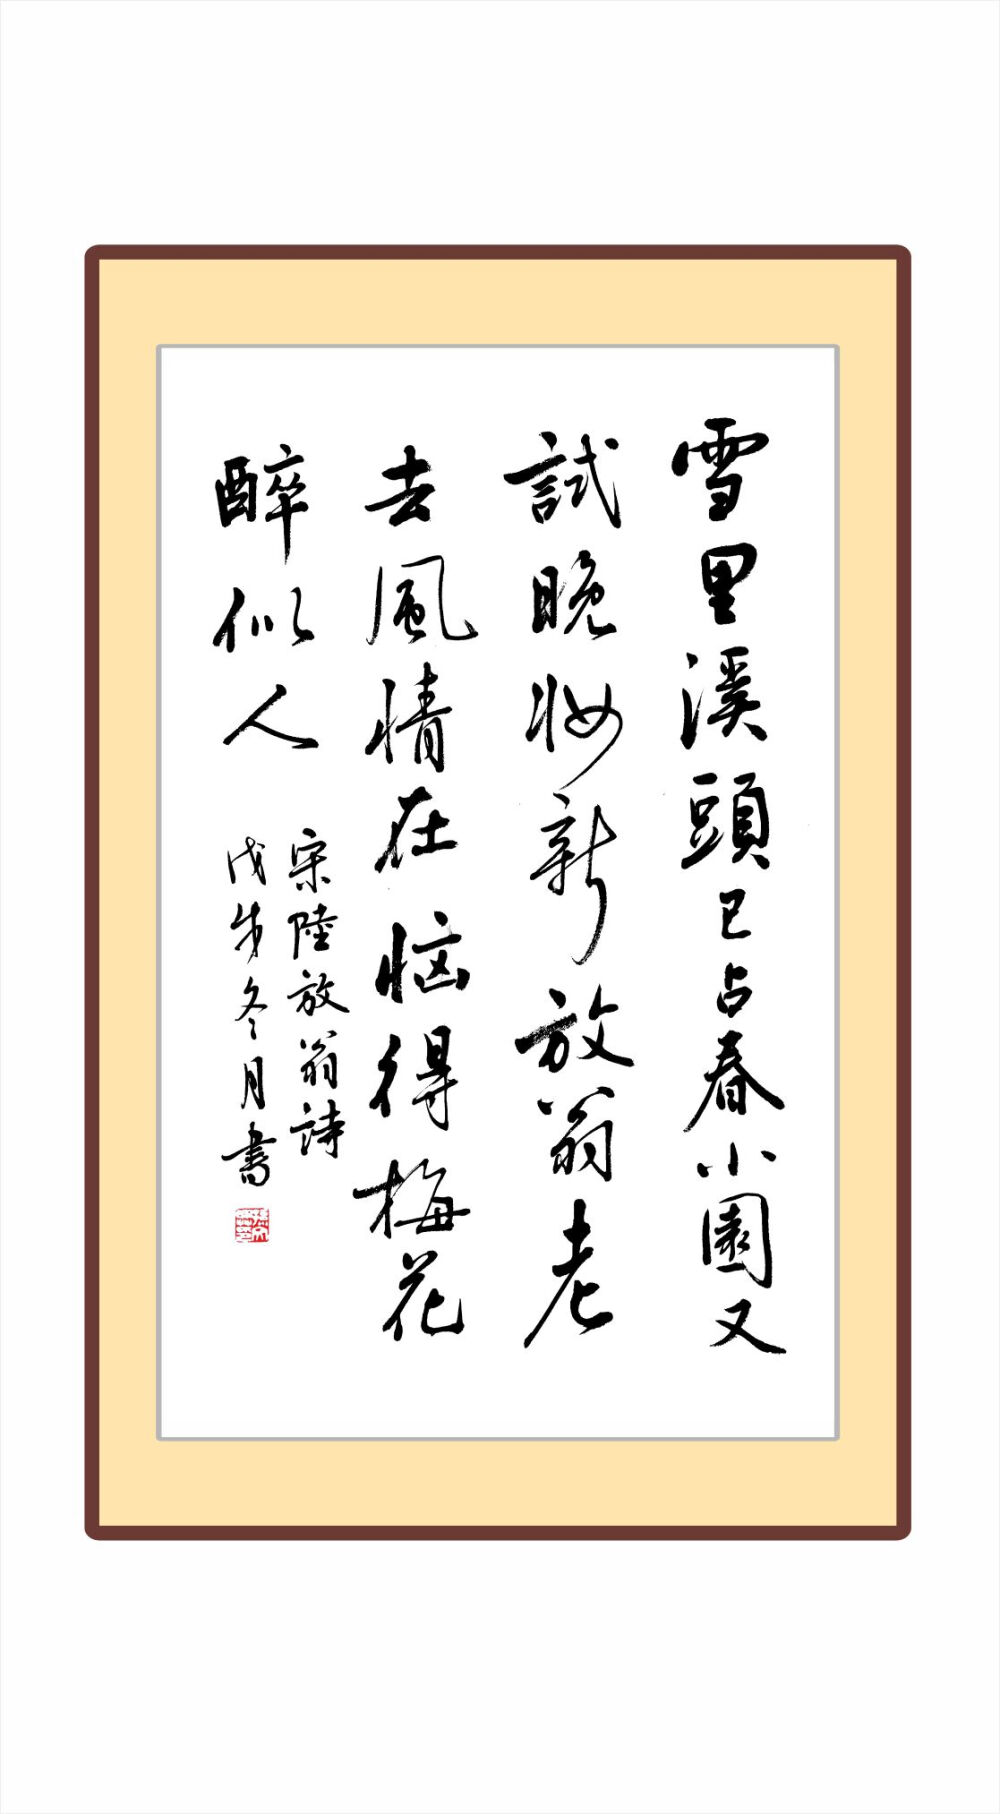 雪里溪頭已占春小園又
試晚妆新放翁老
去風情在恼得梅花
醉似人
宋陸放翁詩
戊戌冬月書